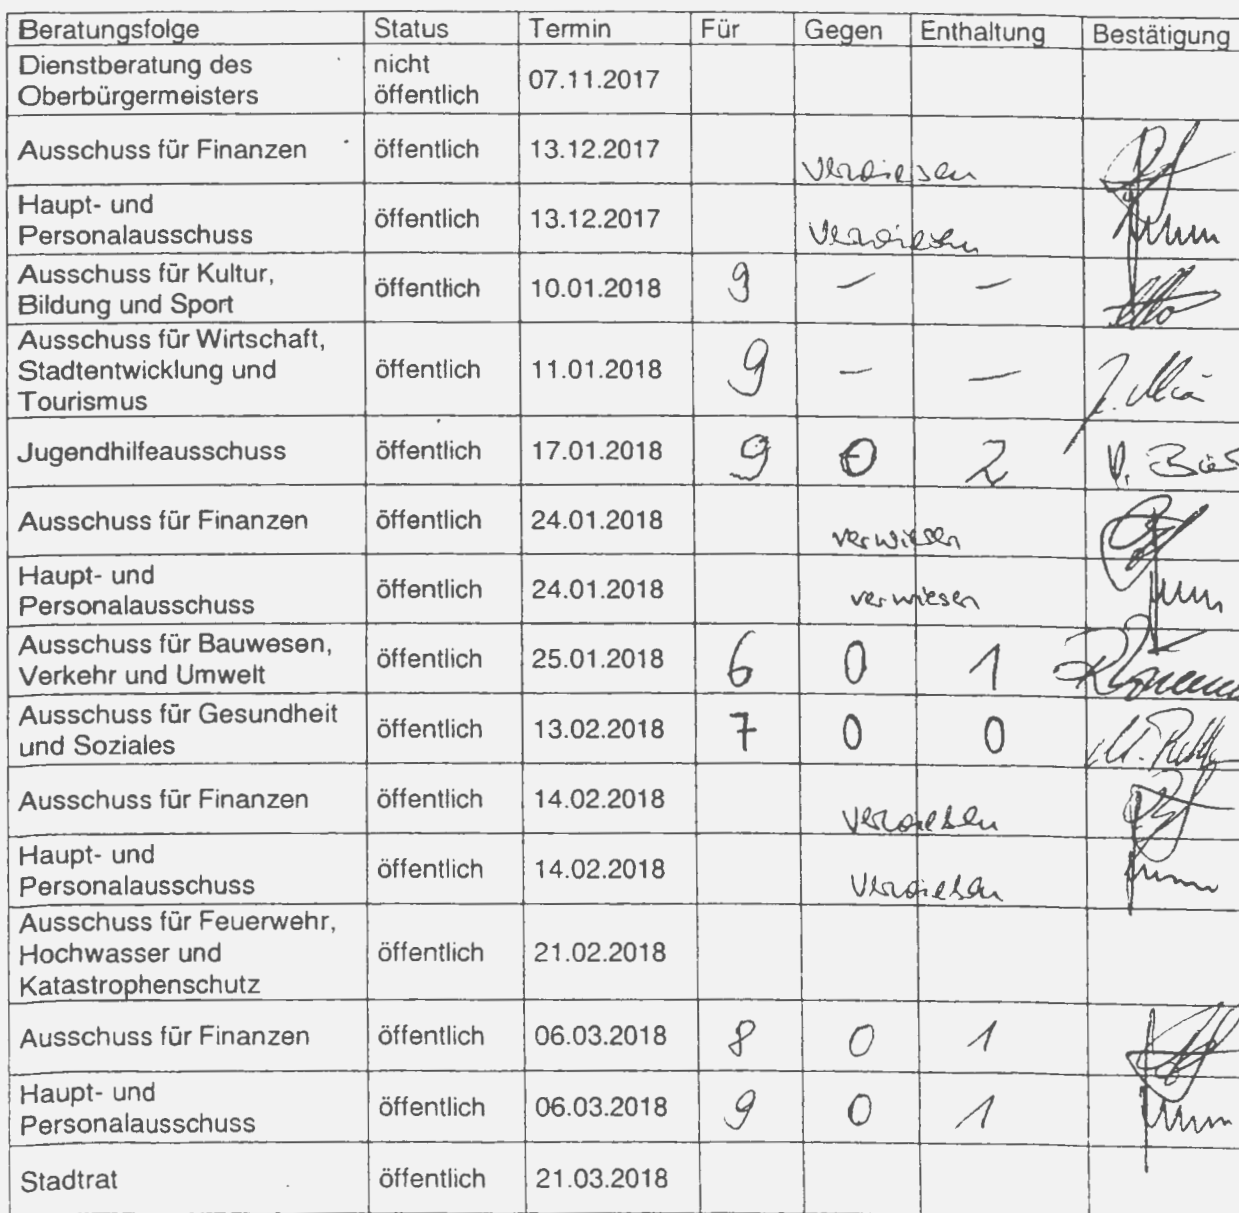 Beratungsfolge Status Termin Für Gegen Enthaltung Bestätigung
Dienstberatung des
Oberbürgermeisters nicht
öffentlich 07.11.2017
Ausschuss für Finanzen öffentlich 13.12.2017 verwiesen
Haupt- und
Personalausschuss öffentlich 13.12.2017 verwiesen
Ausschuss für Kultur,
Bildung und Sport öffentlich 10.01.2018 9 - -
Ausschuss für Wirtschaft,
Stadtentwicklung und
Tourismus öffentlich 11.01.2018 9 - -
Jugendhilfeausschuss öffentlich 17.01.2018 9 0 2
Ausschuss für Finanzen öffentlich 24.01.2018 verwiesen
Haupt- und
Personalausschuss öffentlich 24.01.2018 verwiesen
Ausschuss für Bauwesen,
Verkehr und Umwelt öffentlich 25.01.2018 6 0 1
Ausschuss für Gesundheit
und Soziales öffentlich 13.02.2018 7 0 0
Ausschuss für Finanzen öffentlich 14.02.2018 verwiesen
Haupt- und
Personalausschuss öffentlich 14.02.2018 verwiesen
Ausschuss für Feuerwehr,
Hochwasser und
Katastrophenschutz öffentlich 21.02.2018
Ausschuss für Finanzen öffentlich 06.03.2018 8 0 1
Haupt- und
Personalausschuss öffentlich 06.03.2018 9 0 1
Stadtrat öffentlich 21.03.2018